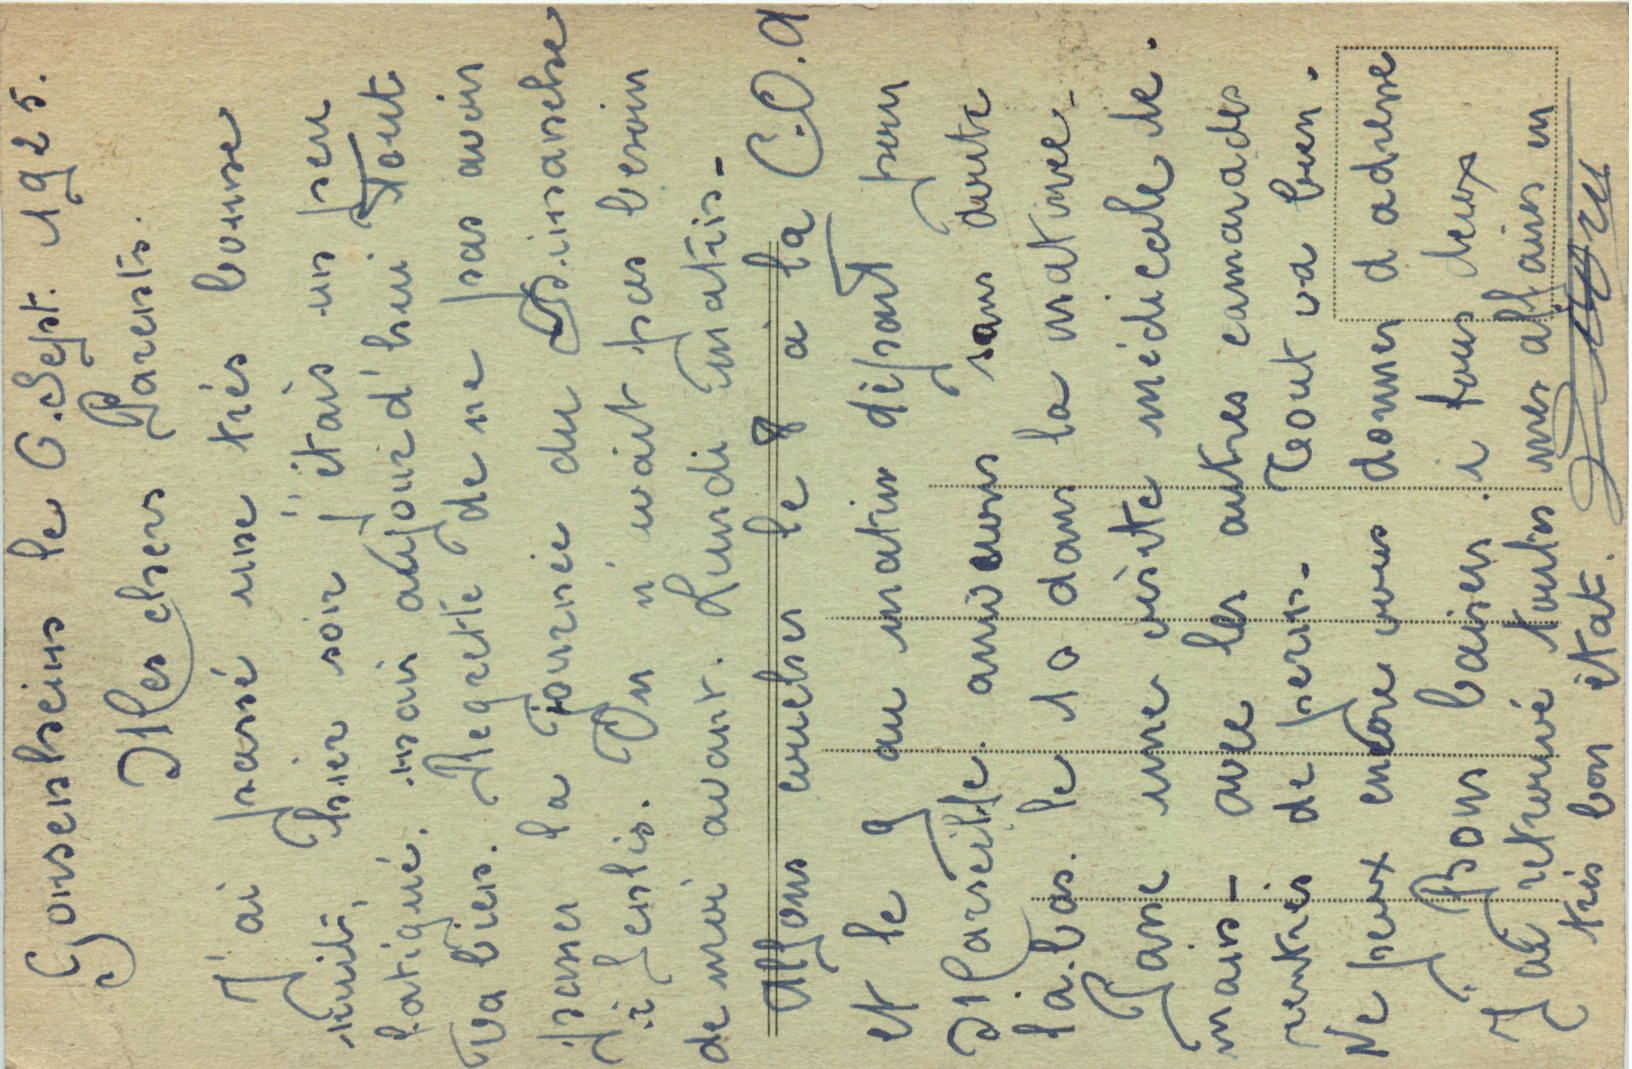 Gonsenheim le 6. Sept. 1925.
Mes chers Parents.
J'ai passé une très bonne
nuit, hier soir j'étais un peu
fatigué. mais aujourd'hui Tout
va bien. Regrette de ne pas avoir
passer la journée du Dimanche
à Senlis. On n'avait pas besoin
de moi avant. Lundi matin-
Allons coucher le 8 à la C.O.A
et le 9 au matin départ pour
Marseille. arriverons sans doute
la-bas. le 10 dans la matinée-
Passe une visite médicale de.
main- avec les autres camarades
rentrés de perm- Tout va bien.
Ne peux encore vous donner d adresse
Bons baisers. à tous deux
J ai retrouvé toutes mes affaires en
très bon état.